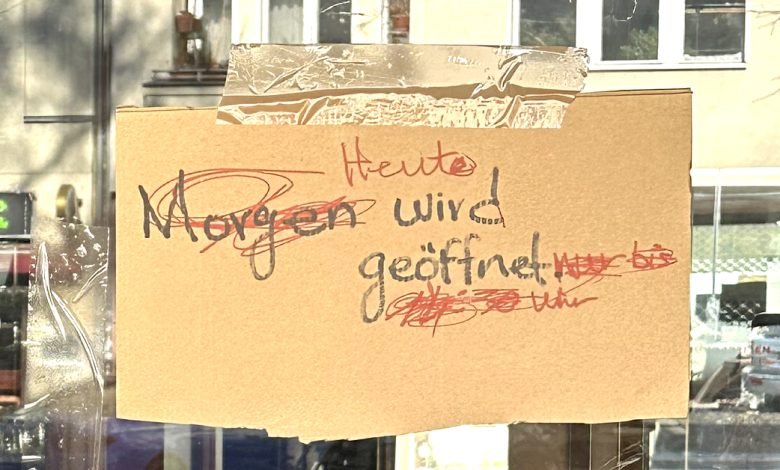 Heute
Morgen wird
geöffnet. nur bis
Uhr